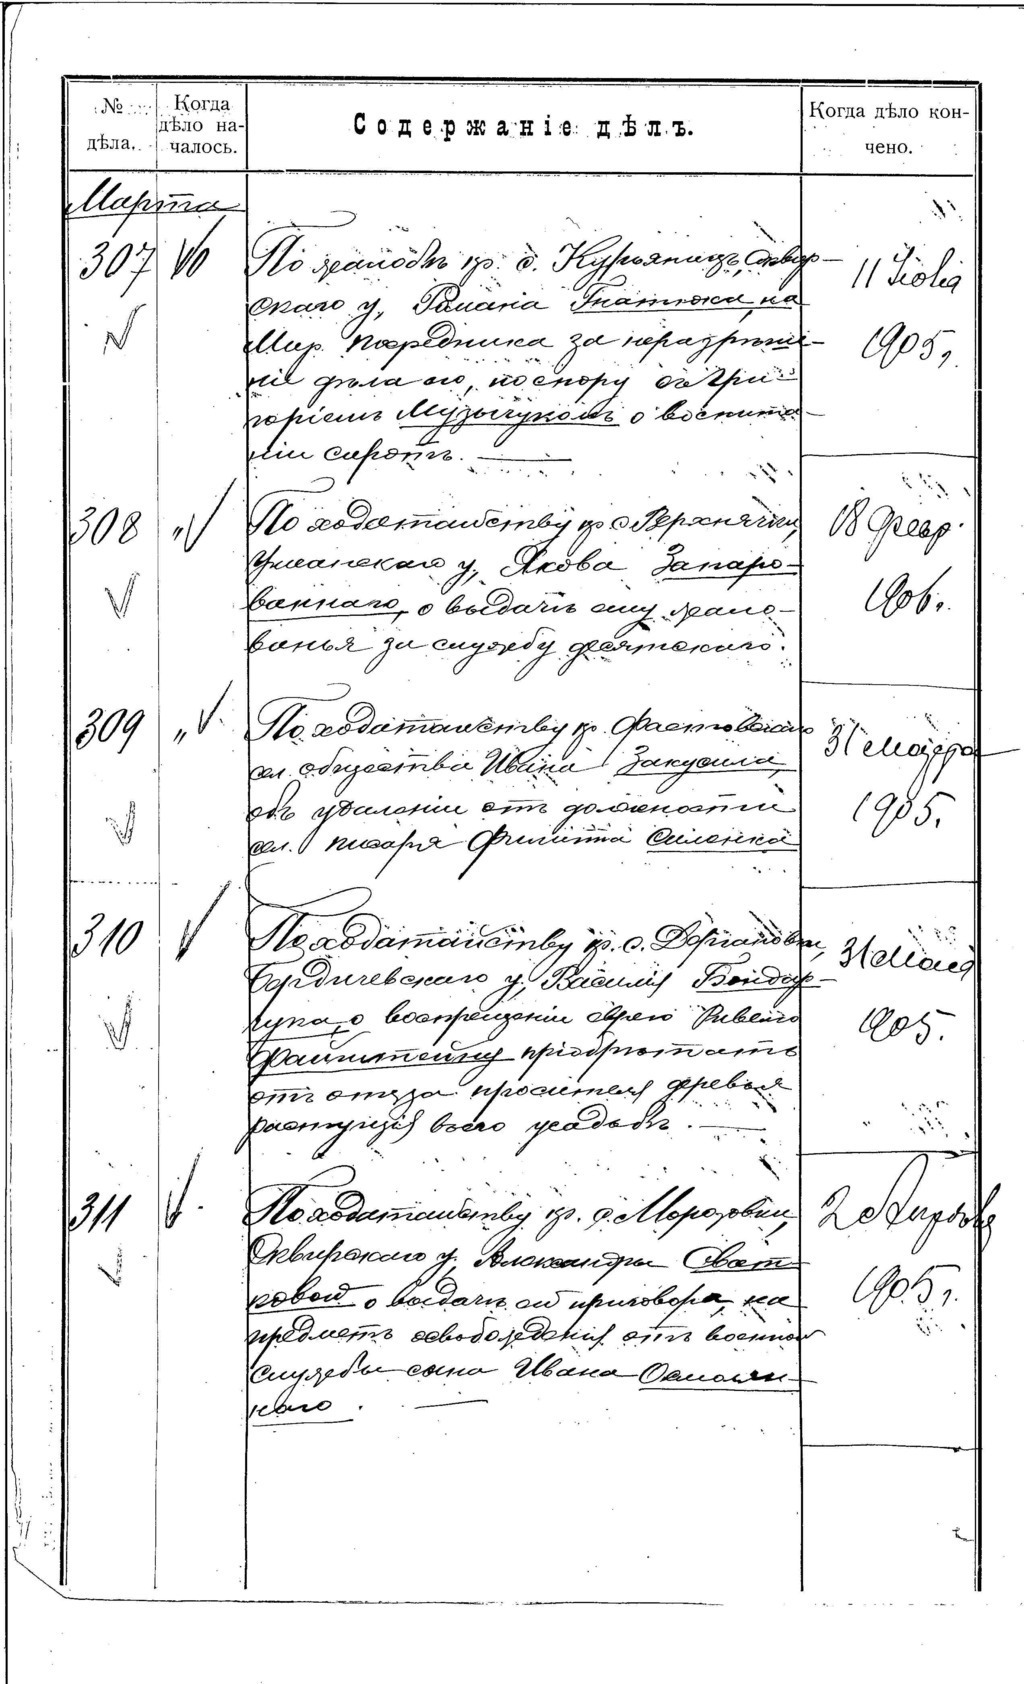 № дѣла.
Когда дѣло на-
чалось.
Содержаніе дѣлъ.
Когда дѣло кон-
чено.
Марта
307
По жалобѣ кр. д. Курьянецъ, Сквир-
скаго у., Романа Гнатюка, на
Мир. посредника за неразрѣше-
ніе дѣла его, по спору съ Гри-
горіемъ Музычукомъ о воспита-
ніи сиротъ.
11 Іюля
1905 г.
308 "
По ходатайству кр. с. Верхнячки,
Уманскаго у., Якова Запаро-
ваннаго, о выдачѣ ему жало-
ванья за службу десятскаго.
18 Февр.
1906 г.
309 "
По ходатайству кр. Фастовскаго
сел. общества Ивана Закусила,
объ удаленіи отъ должности
сел. писаря Филиппа Силенка
31 Марта
1905.
310
По ходатайству кр. с.
Бердичевскаго у., Василія Бондар-
чука, о воспрещеніи еврею
Файнштейну пріобрѣтать
отъ отца просителя деревья
растущія въ его усадьбѣ.
31 Мая
1905.
311
По ходатайству кр. с. Морозовки,
Сквирскаго у., Александры Сват-
ковой о выдачѣ ей приговора, на
предметъ освобожденія отъ военной
службы сына Ивана Осмолян-
наго.
2 Апрѣля
1905 г.